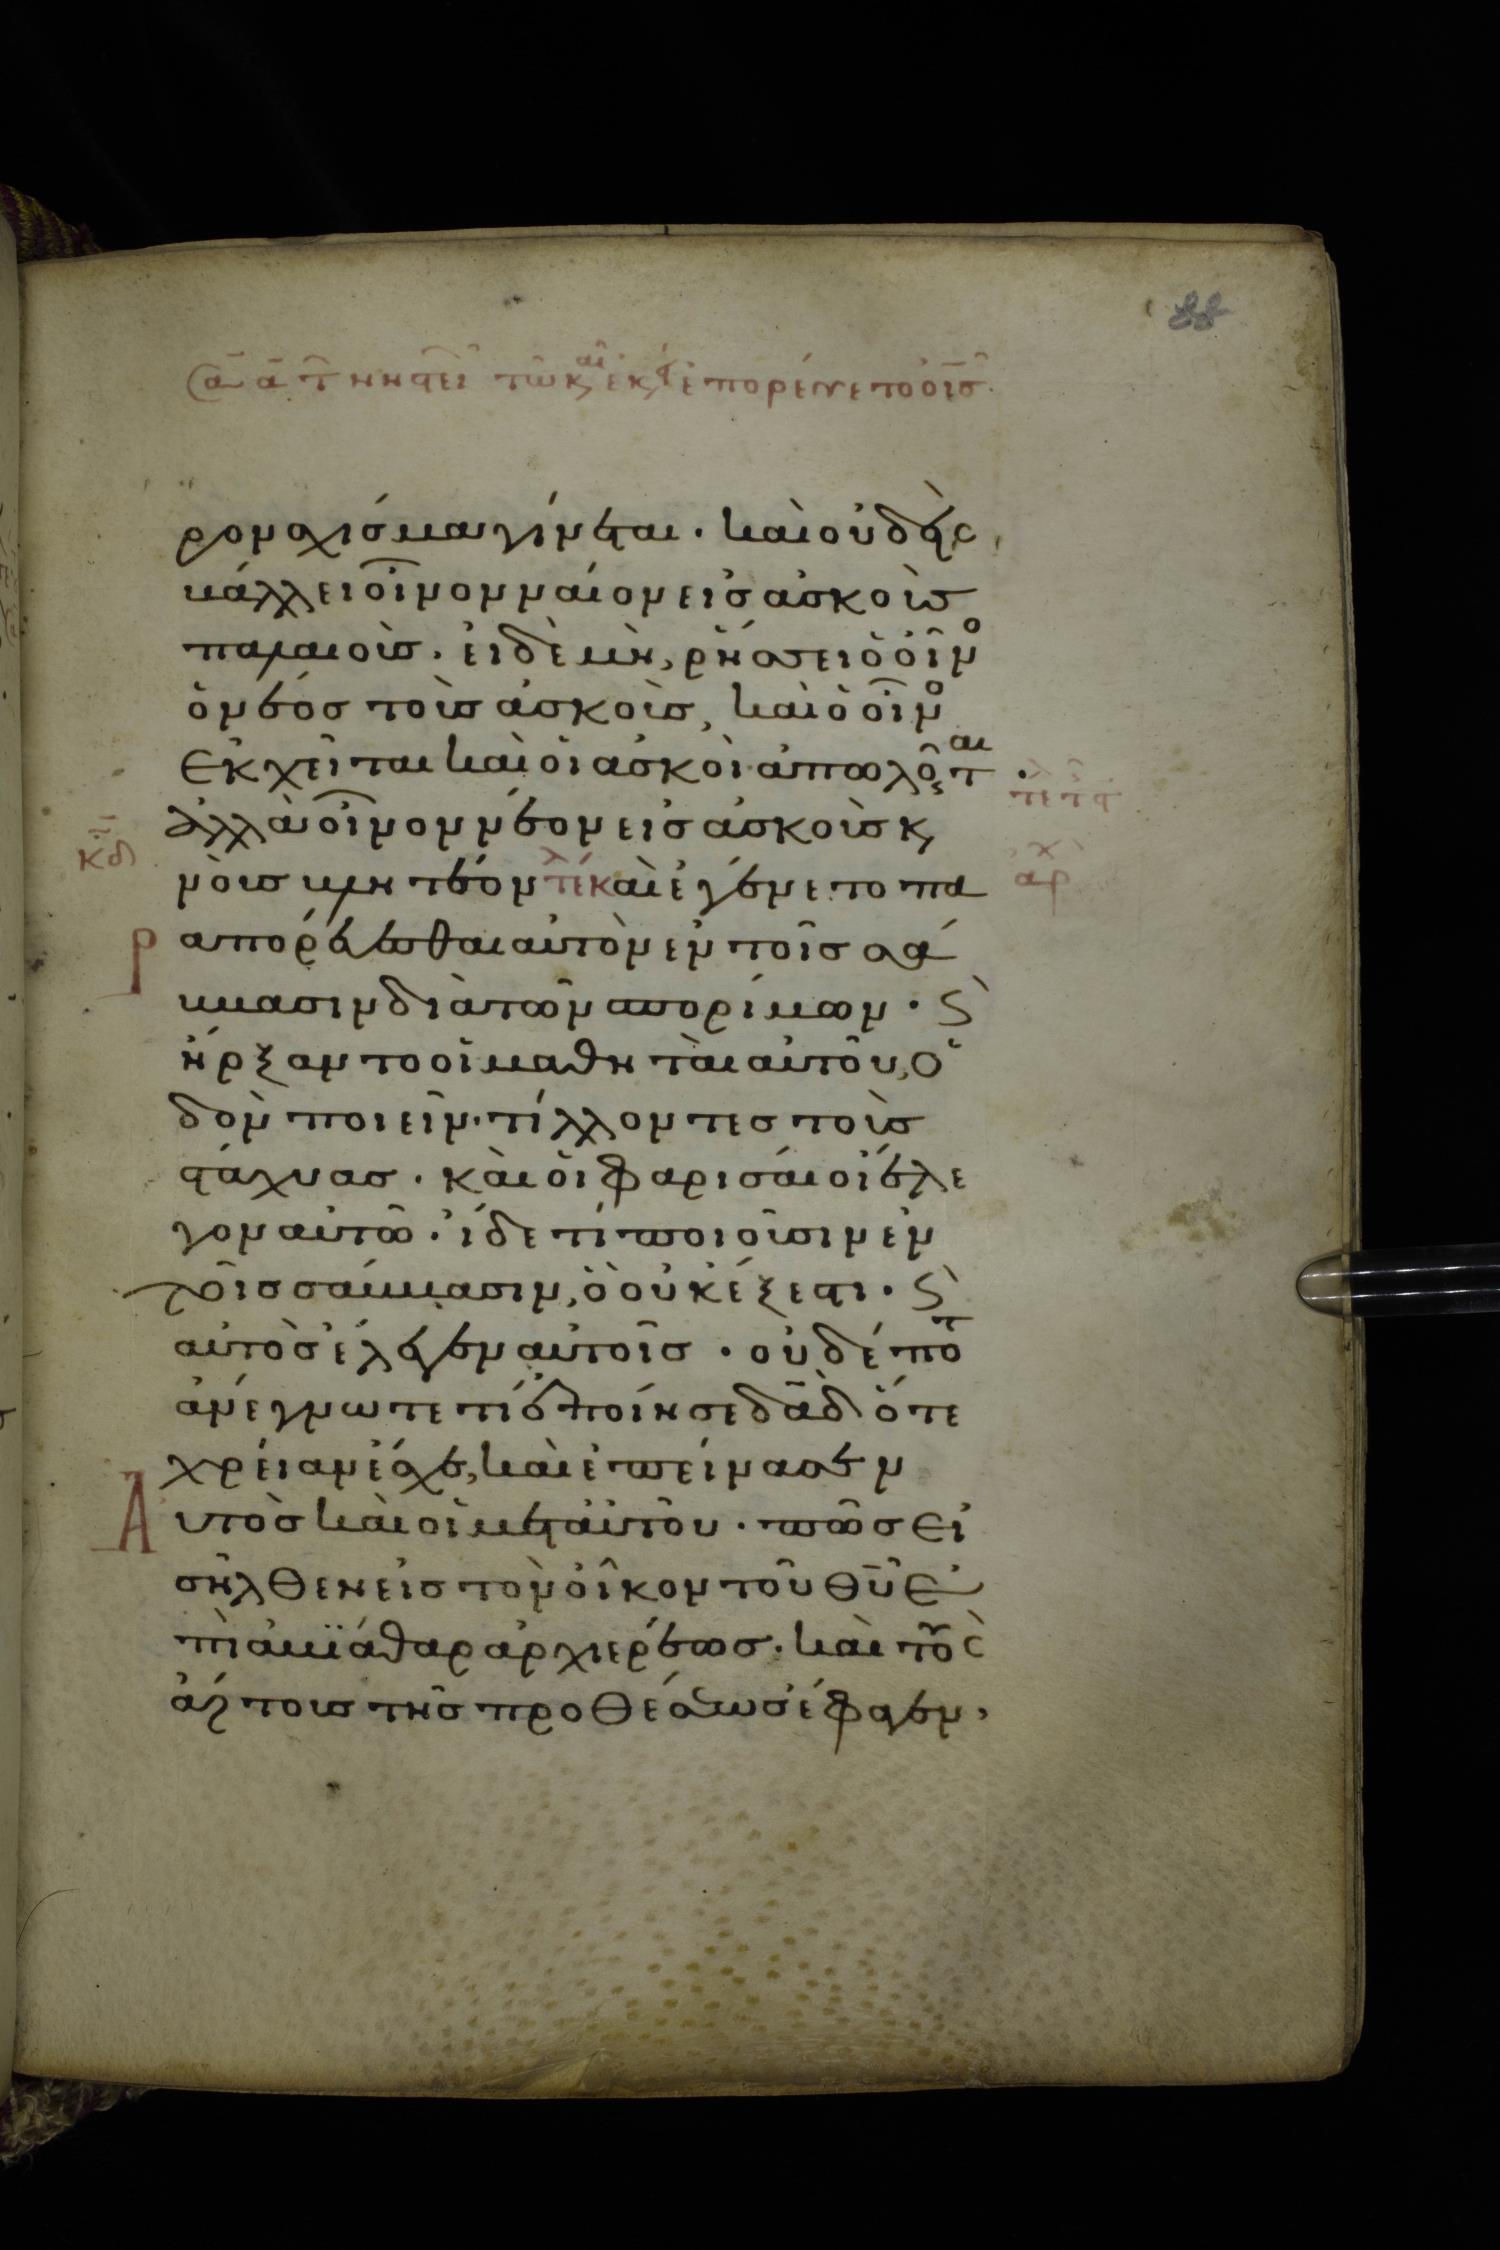 88
ρον σχίσμα γίνεται · καὶ οὐδεὶς
βάλλει οἶνον νέον εἰσ ἀσκοὺσ
παλαιούσ · εἰ δὲ μὴ, ρήσσει ὁ οἶνο
ὁ νέοσ τοὺσ ἀσκοὺσ, καὶ ὁ οἶνο
ἐκχεῖται καὶ οἱ ἀσκοὶ ἀπολοῦνται ·
ἀλλὰ οἶνον νέον εἰσ ἀσκοὺσ κ
νοὺσ βλητέον τέ καὶ ἐγένετο πα
ραπορεύεσθαι αὐτὸν ἐν τοῖσ σά
ββασιν διὰ τῶν σπορίμων · ϛ
ἤρξαντο οἱ μαθηταὶ αὐτοῦ, ὁ
δὸν ποιεῖν · τίλλοντεσ τοὺσ
στάχυασ · καὶ οἱ φαρισαίοι ἔλε
γον αὐτῶ · ἴδε τί ποιοῦσιν ἐν
τοῖσ σάββασιν, ὃ οὐκ έξεστι · ϛ
αὐτὸσ ἔλεγεν αὐτοῖσ · οὐδέποτ
ἀνέγνωτε τί ἐποίησε δᾱδ ὅτε
χρείαν ἔσχε, καὶ ἐπείνασεν
Αὐτὸσ καὶ οἱ μετ αὐτοῦ · πῶσ εἰ
σῆλθεν εἰσ τὸν οἶκον τοῦ θῡ ἐ
πὶ ἀβϊάθαρ ἀρχιερέωσ · καὶ τοὺς
ἄρτουσ τῆσ προθέσεωσ έφαγεν,
κδ